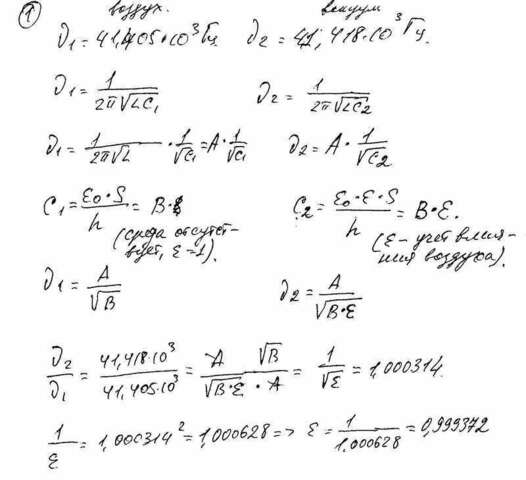 1
воздух. вакуум
ν₁ = 41,405·10³ Гц ν₂ = 41,418·10³ Гц.
ν₁ = 1/(2π√LC₁) ν₂ = 1/(2π√LC₂)
ν₁ = 1/(2π√L) · 1/√C₁ = A · 1/√C₁ ν₂ = A · 1/√C₂
C₁ = ε₀·S/h = B C₂ = ε₀·ε·S/h = B·ε.
(среда отсутст- (ε – учет влия-
вует, ε=1). ния воздуха).
ν₁ = A/√B ν₂ = A/√(B·ε)
ν₂/ν₁ = 41,418·10³/41,405·10³ = A √B/(√(B·ε) · A) = 1/√ε = 1,000314
1/ε = 1,000314² = 1,000628 => ε = 1/1,000628 = 0,999372